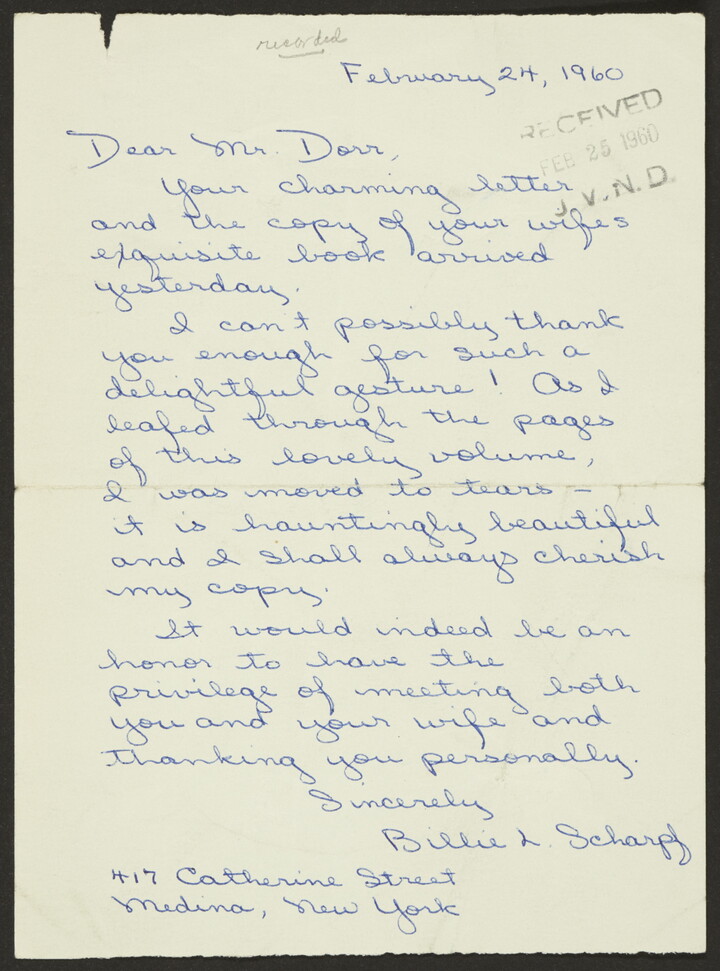 recorded
February 24, 1960
RECEIVED
FEB 25 1960
J.V.N.D.
Dear Mr. Dorr,
Your charming letter
and the copy of your wifes
exquisite book arrived
yesterday.
I can't possibly thank
you enough for such a
delightful gesture! As I
leafed through the pages
of this lovely volume,
I was moved to tears –
it is hauntingly beautiful
and I shall always cherish
my copy.
It would indeed be an
honor to have the
privilege of meeting both
you and your wife and
thanking you personally.
Sincerely
Billie L. Scharpf
417 Catherine Street
Medina, New York